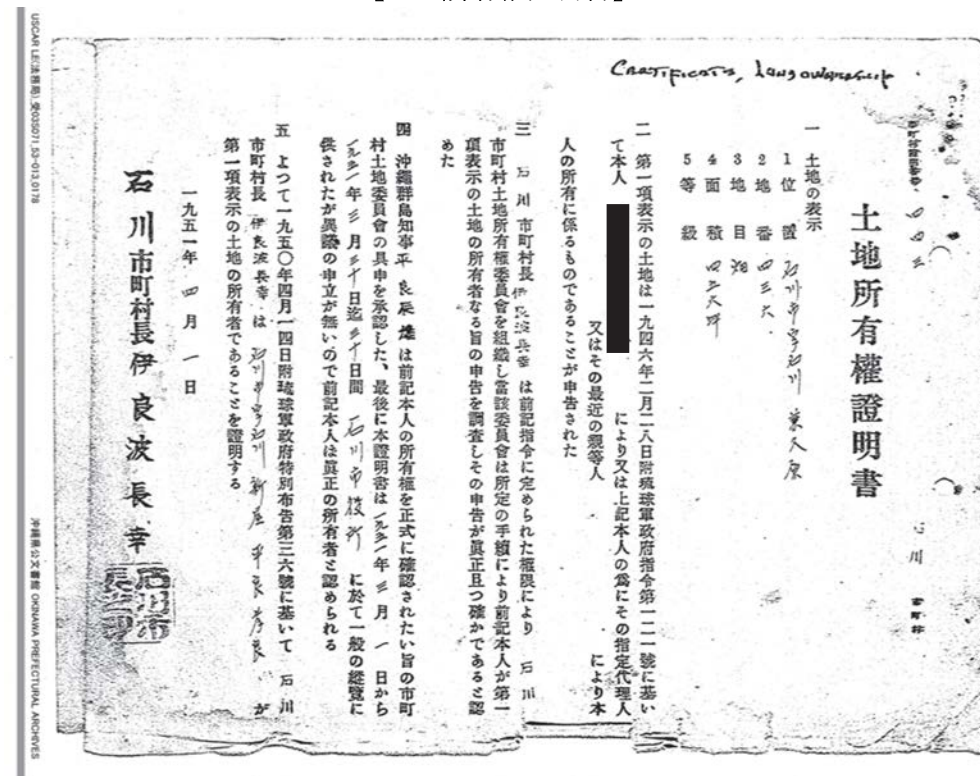 Certificate, Land ownership
市町村
土地所有權證明書
一 土地の表示
1 位置 石川市字石川
2 地番 四三六
3 地目 畑
4 面積 四二六坪
5 等級
二 第一項表示の土地は一九四六年二月二八日附琉球軍政府指令第一二一號に基い
て本人 により又は上記本人の爲にその指定代理人
又はその最近の親等人 により本
人の所有に係るものであることが申告された
三 石川 市町村長 伊良波長幸 は前記指令に定められた權限により 石川
市町村土地所有權委員會を組織し當該委員會は所定の手續により前記本人が第一
項表示の土地の所有者なる旨の申告を調査しその申告が眞正且つ確かであると認
めた
四 沖繩群島知事 平良辰雄 は前記本人の所有權を正式に確認されたい旨の市町
村土地委員會の具申を承認した、最後に本證明書は 一九五一年 三月 一日から
一九五一年 三月三十日迄三十日間 石川市役所 に於て一般の縱覽に
供されたが異議の申立が無いので前記本人は眞正の所有者と認められる
五 よつて一九五〇年四月一四日附琉球軍政府特別布告第三六號に基いて 石川
市町村長 伊良波長幸 は 石川市字石川 が
第一項表示の土地の所有者であることを證明する
一九五一年 四月 一日
石川市町村長 伊良波長幸
USCAR LE(法務局)_受03S071_53-013_0178
沖縄県公文書館 OKINAWA PREFECTURAL ARCHIVES